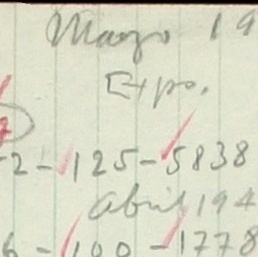 Marzo 19
Expo.
2-125-5838
Abril 194
6-100-1778